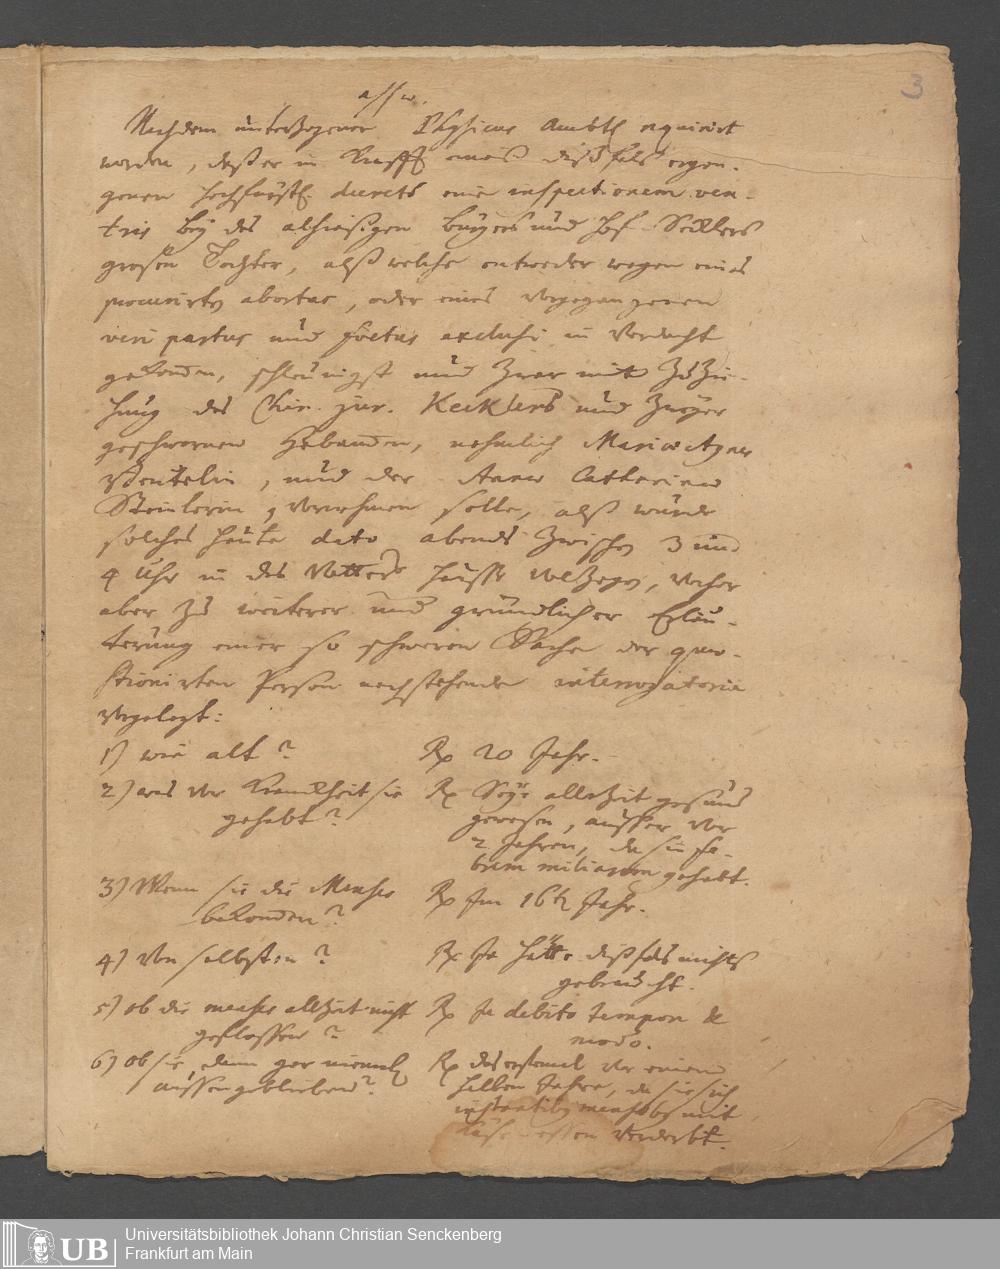 3
Nachdem unterzogener Physicus Ambtl. requirirt
worden, daß er in Krafft eines dißfals ergan-
genen hochfürstl. decrets eine inspectionem ven-
tris bey des alhiesigen burgers und Hof Sattlers
großen Tochter, alß welche entweder wegen eines
procurirten abortus, oder eines vorgegangenen
veri partus und foetus exclusi in Verdacht
gekommen, schleunigst und zwar mit Zuzie-
hung des Chir. jur. Kecklers und zweyer
geschwornen Hebammen, nehmlich Mariae Agnes
, und der Anna Catharina
Steinlerin, vornehmen solle, alß wurde
solches heute dato abends zwischen 3 und
4 Uhr in des Vatters Hauße vollzogen, vorher
aber zu weiterer und gründlicher Erläu-
terung einer so schweren Sache der quae-
stionirten Person nachstehende interrogatoria
vorgelegt:
1) wie alt? Rx 20 Jahr.
2) was vor Kranckheit sie
gehabt?
Rx Seye allezeit gesund
gewesen, ausser vor
2 Jahren, da sie fe-
brem miliarem gehabt.
3) Wenn sie die Menses
bekommen?
Rx Im 16t. Jahr.
4) Von selbsten?
Rx Ja hätte dißfals nichts
gebraucht.
5) ob die menses allezeit recht
geflossen?
Rx Ja debito tempore &
modo.
6) Ob sie, denn gar niemals
aussengeblieben?
Rx das erstemal vor einem
halben Jahre, da sie sich
instantibus mensibus mit
Käse essen verderbt.
Universitätsbibliothek Johann Christian Senckenberg
Frankfurt am Main
UB